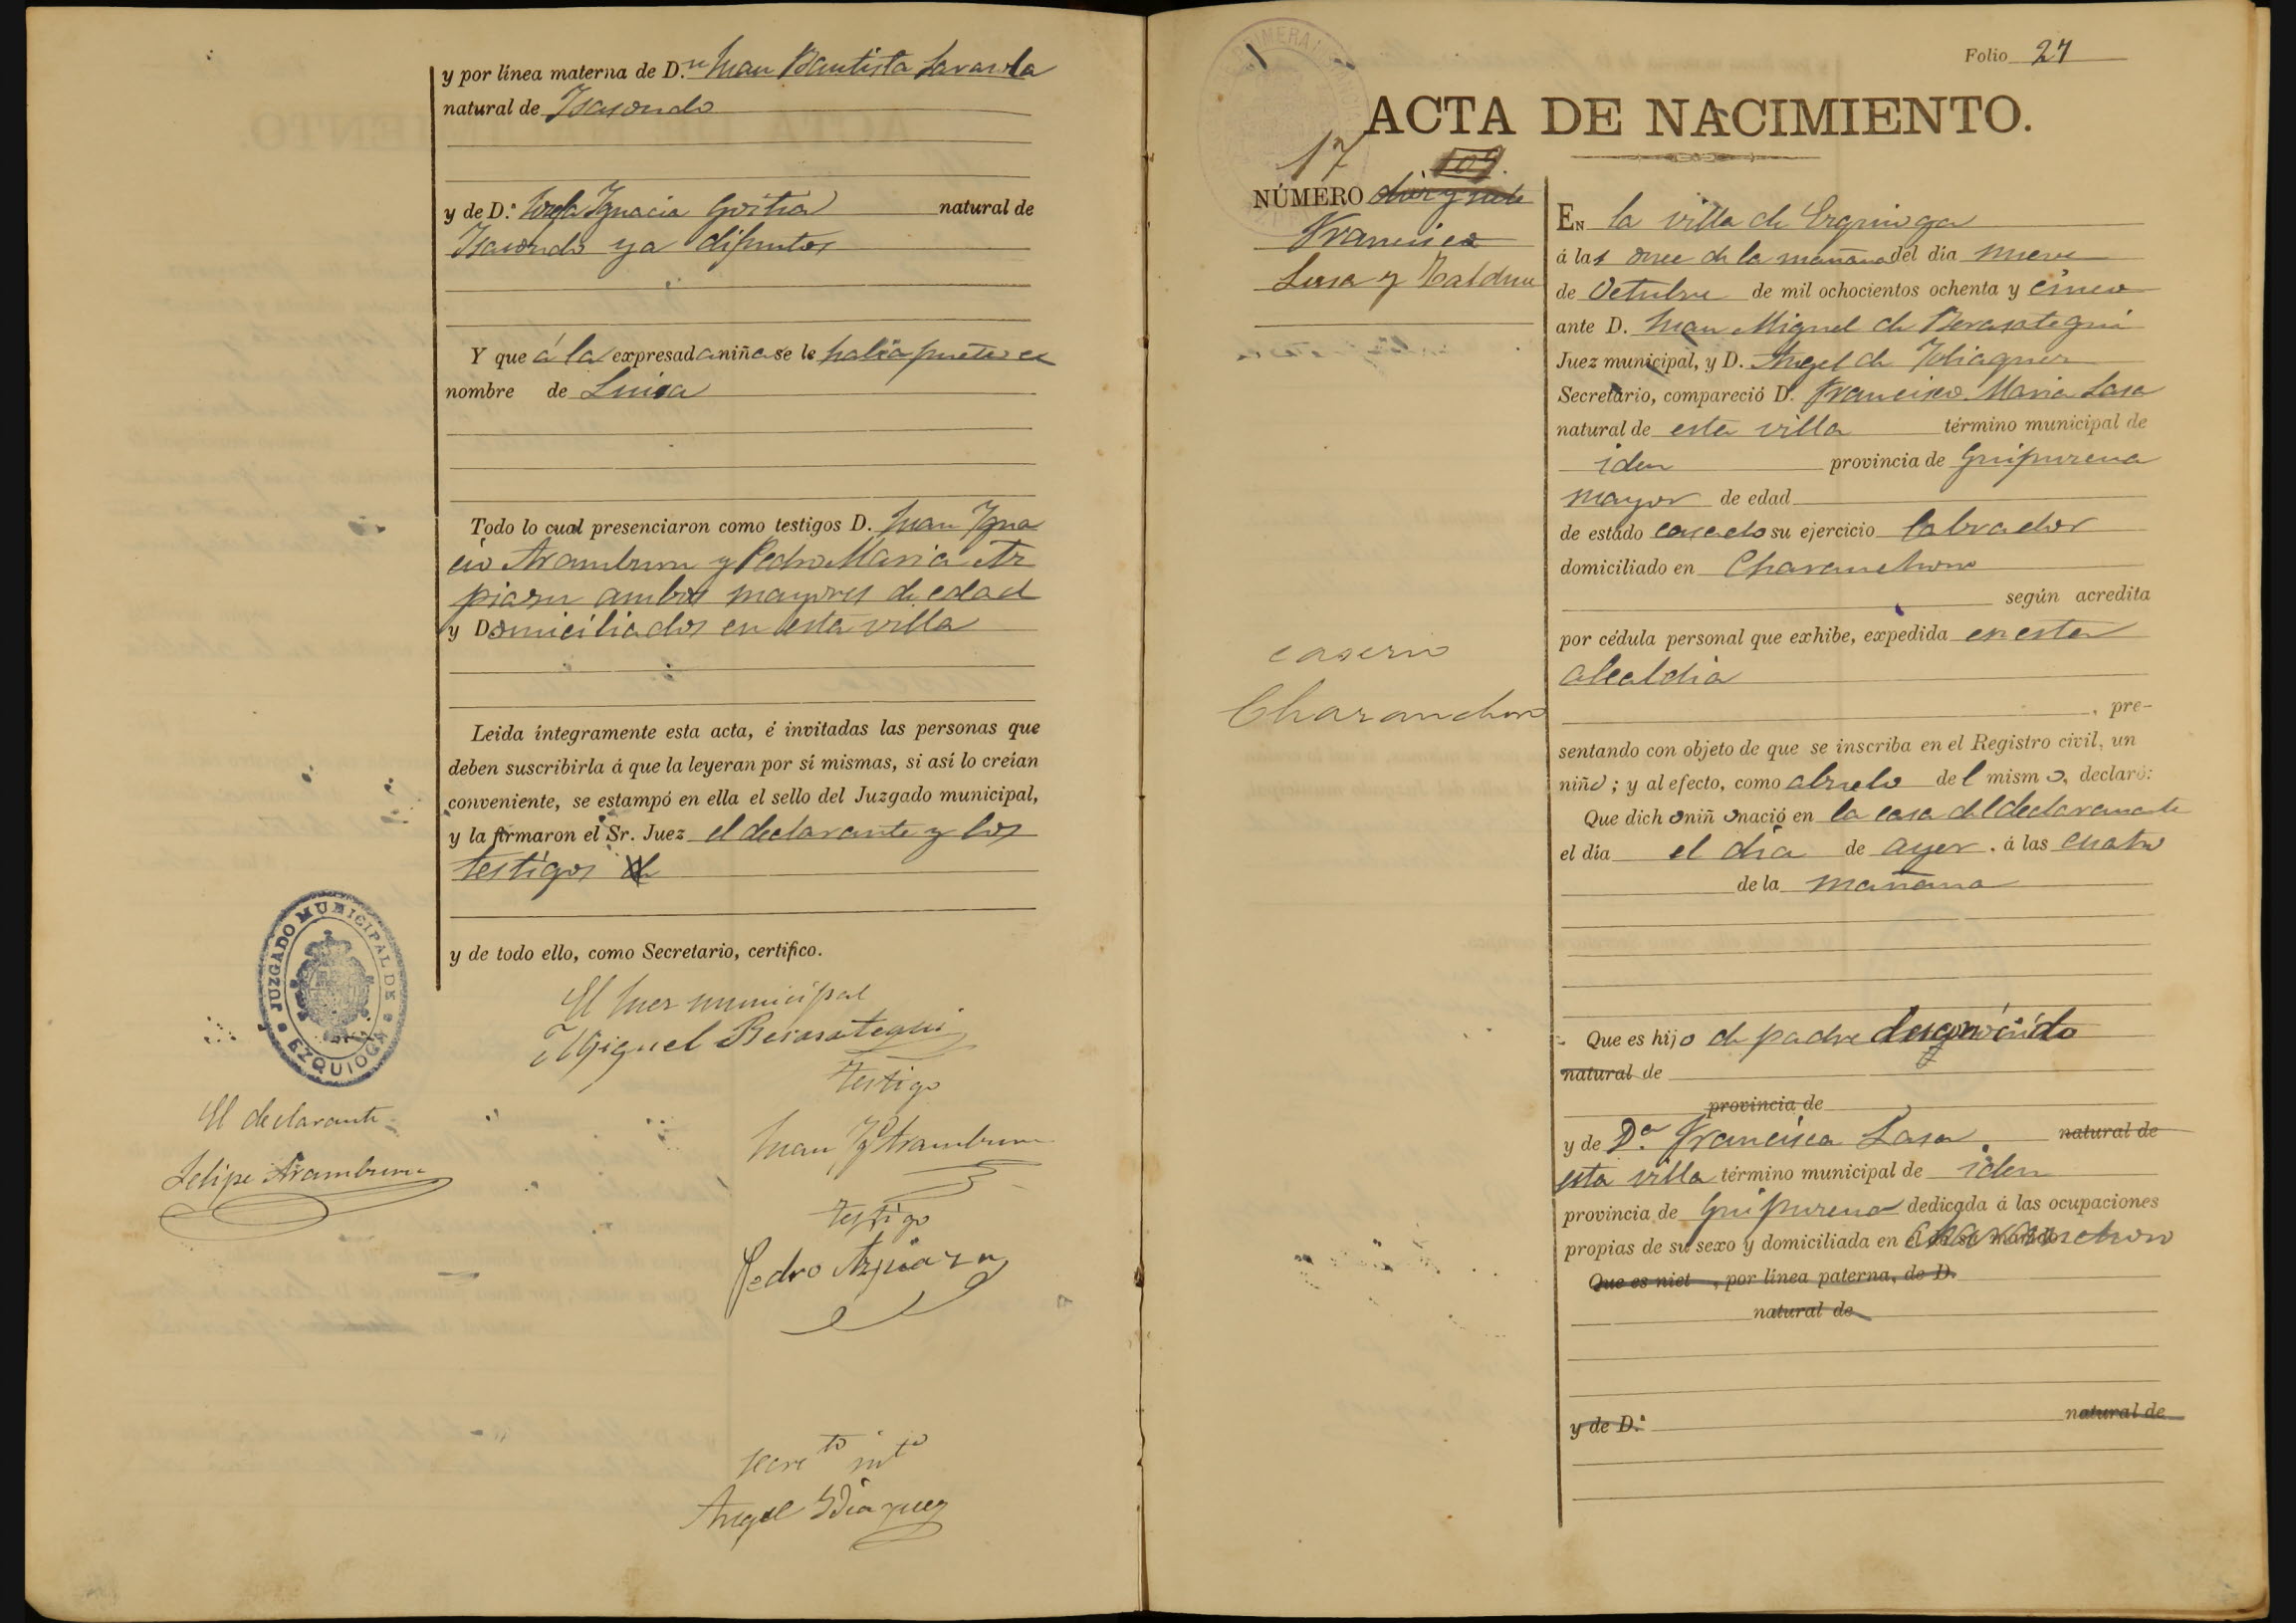 y por línea materna de D.n Juan Bautista
natural de Isasondo
y de D.ª Josefa Ignacia Goitia natural de
Isasondo ya difuntos
Y que á la expresada niña se le había puesto el
nombre de Luisa
Todo lo cual presenciaron como testigos D. Juan Igna
cio Aramburu y Pedro Maria Az
piazu ambos mayores de edad
y Domiciliados en esta villa
Leida íntegramente esta acta, é invitadas las personas que
deben suscribirla á que la leyeran por sí mismas, si así lo creían
conveniente, se estampó en ella el sello del Juzgado municipal,
y la firmaron el Sr. Juez el declarante y los
testigos
y de todo ello, como Secretario, certifico.
JUZGADO MUNICIPAL DE EZQUIOGA
El Juez municipal
Miguel Berasategui
testigo
Juan Yg Aramburu
El declarante
Felipe Aramburu
testigo
Pedro Azpiazu
Angel
Folio 27
ACTA DE NACIMIENTO.
17 109.
NÚMERO diez y siete
Francisco
Lasa y
caserio
Charanchon
EN la villa de Ezquioga
á las once de la mañana del día nueve
de Octubre de mil ochocientos ochenta y cinco
ante D. Juan Miguel de Berasategui
Juez municipal, y D. Angel de
Secretario, compareció D. Francisco Maria Lasa
natural de esta villa término municipal de
iden provincia de Guipuzcoa
mayor de edad
de estado casado su ejercicio labrador
domiciliado en Charanchon
según acredita
por cédula personal que exhibe, expedida en esta
alcaldia
, pre-
sentando con objeto de que se inscriba en el Registro civil, un
niño; y al efecto, como abuelo del mismo, declaró:
Que dicho niño nació en la casa del declarante
el día el dia de ayer. á las cuatro
de la mañana
Que es hijo de padre desconocido
natural de
provincia de
y de D.a Francisca Lasa. natural de
esta villa término municipal de iden
provincia de Guipuzcoa dedicada á las ocupaciones
propias de su sexo y domiciliada en Charanchon
Que es niet , por línea paterna, de D.
natural de
y de D.ª natural de